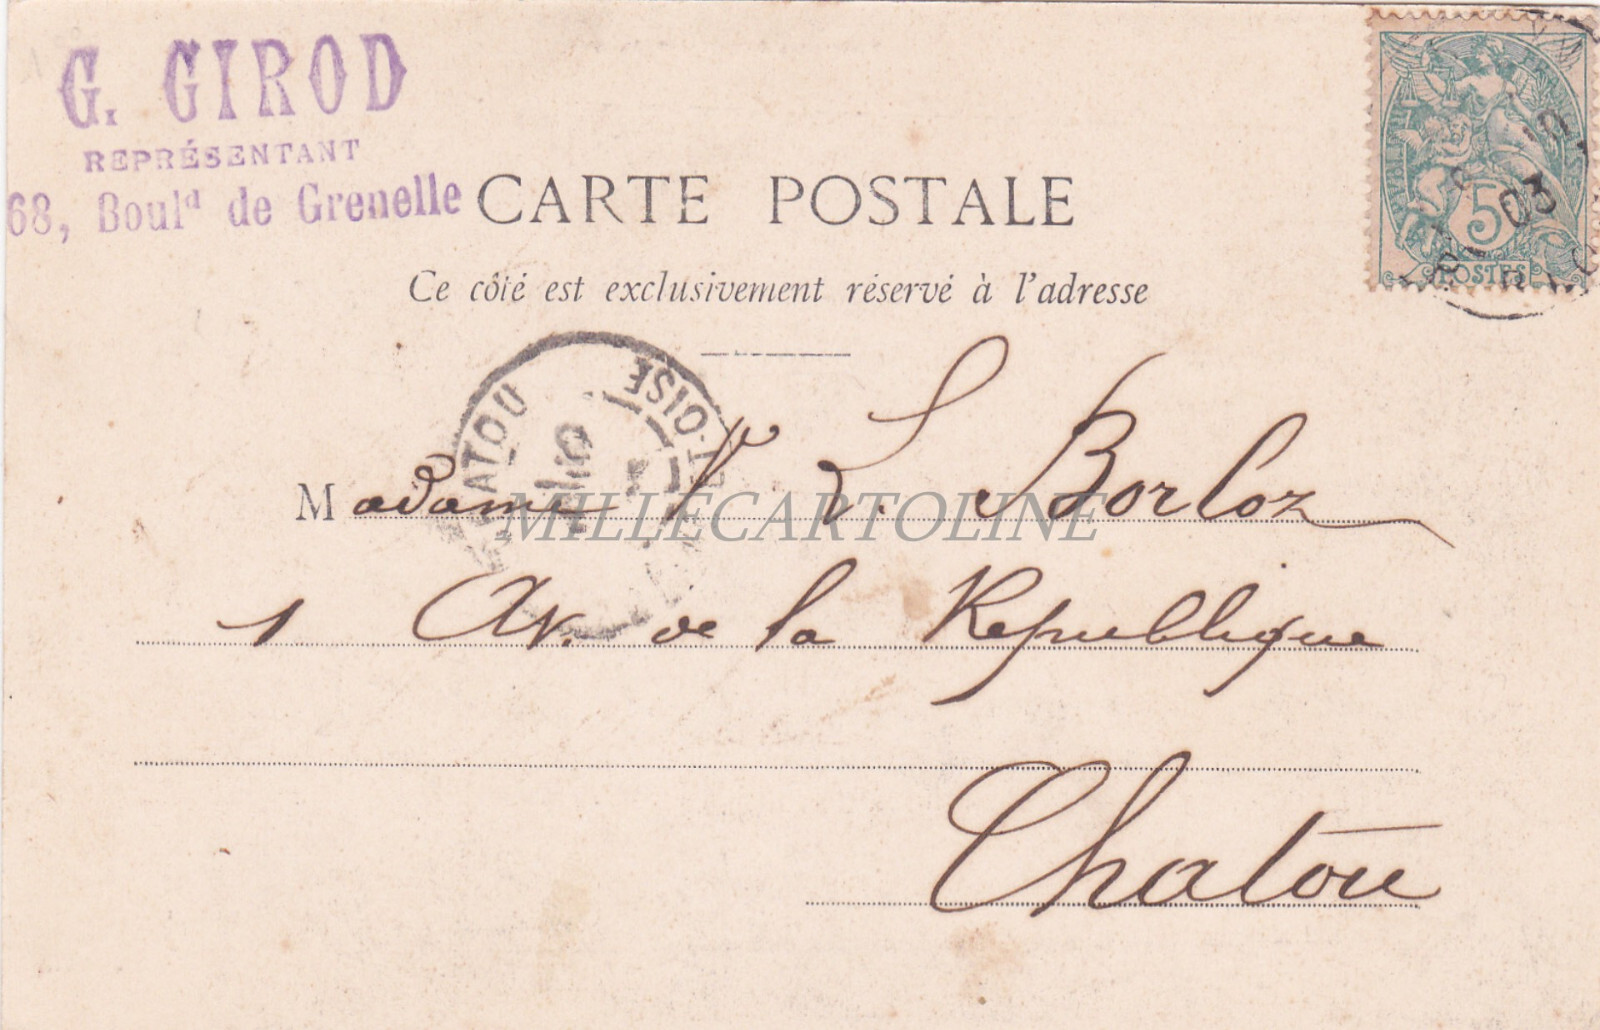 G. GIROD
REPRÉSENTANT
68, Boul<sup>d</sup> de Grenelle
CARTE POSTALE
Ce côté est exclusivement réservé à l'adresse
5
03
POSTES
CHATOU
OISE
Madame V<sup>ve</sup> L. Borloz
MILLECARTOLINE
1 Av. de la Republique
Chatou